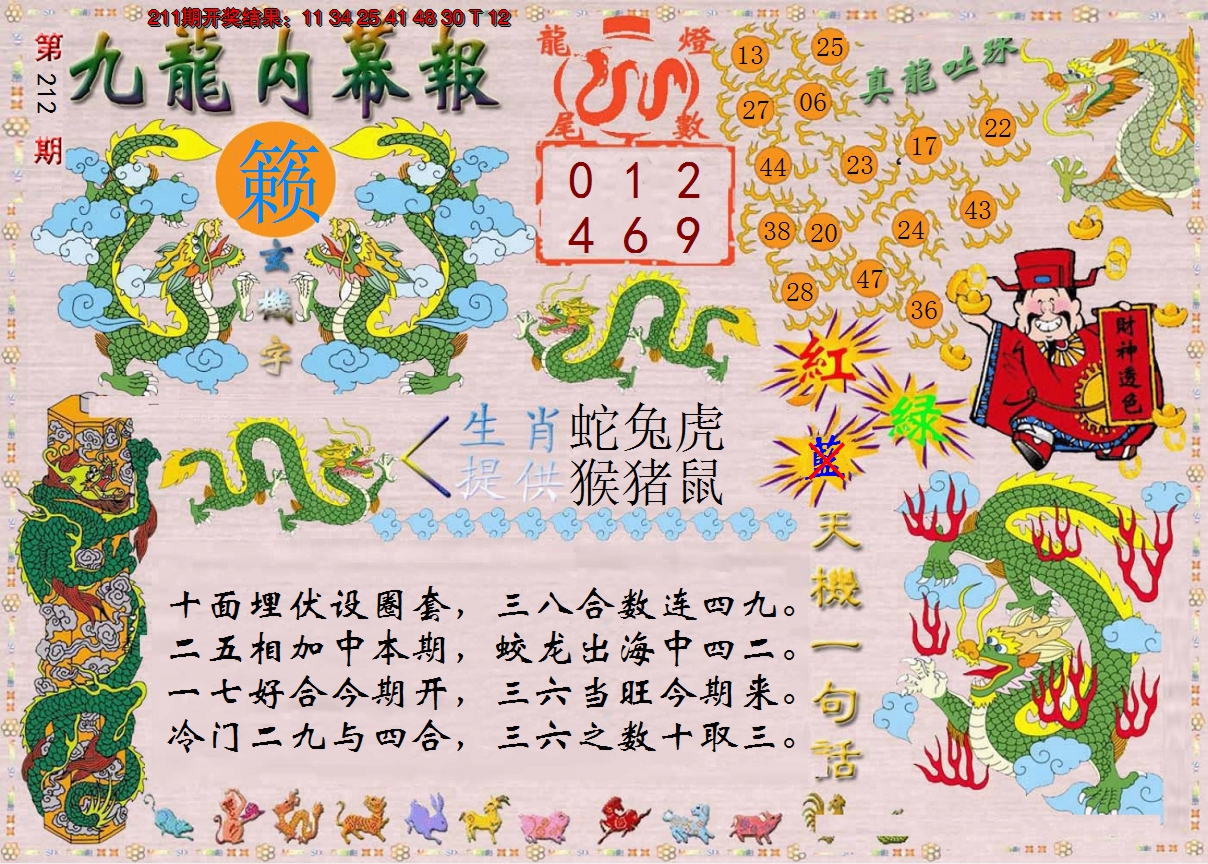 211期开奖结果：11 34 25 41 48 30 T 12
第212期
九龍内幕報
籁
玄機字
龍燈
尾數
0 1 2
4 6 9
真龍吐珠
13 25
27 06
17 22
44 23
43
38 20 24
28 47
36
紅
綠
藍
財神透色
生肖 蛇兔虎
提供 猴猪鼠
天機一句話
十面埋伏设圈套，三八合数连四九。
二五相加中本期，蛟龙出海中四二。
一七好合今期开，三六当旺今期来。
冷门二九与四合，三六之数十取三。